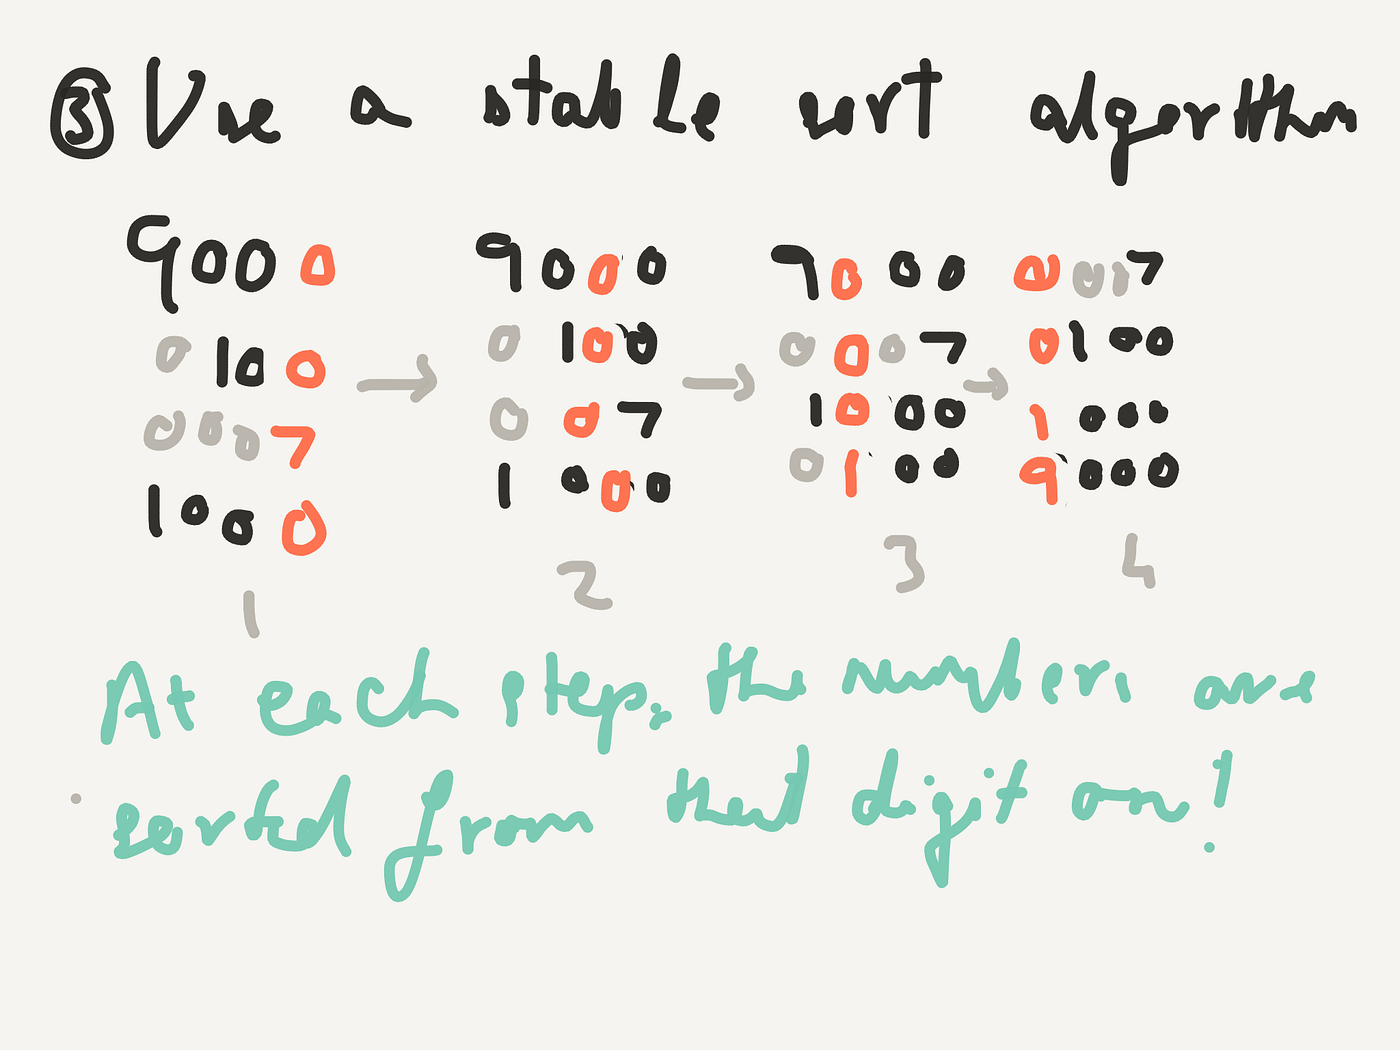 ③ Use a stable sort algorithm
9000 → 9000 → 9000 → 0007
0100 0100 0007 0100
0007 007 1000 1000
1000 1000 0100 9000
1 2 3 4
At each step, the numbers are
sorted from that digit on!